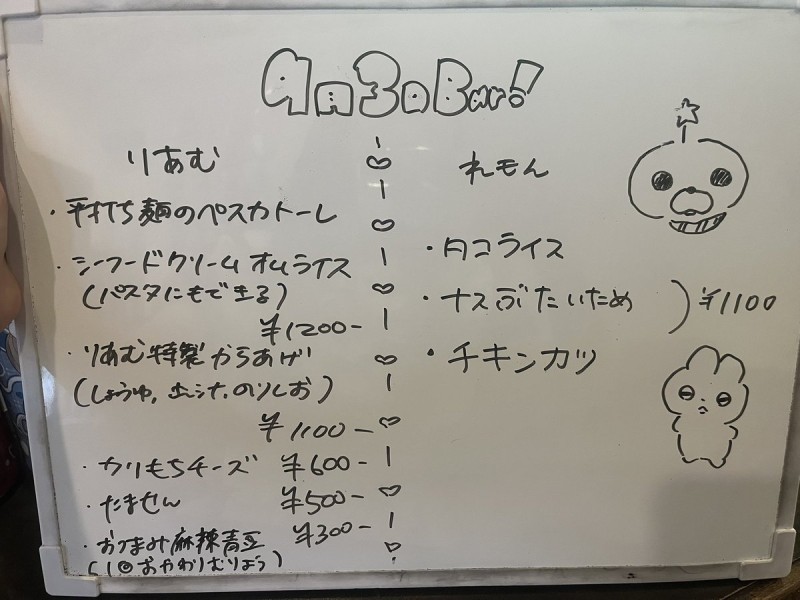 りあむ
・平打ち麺のペスカトーレ
・シーフードクリームオムライス
(パスタにもできる)
¥1200-
・りあむ特製からあげ
(しょうゆ, のりしお)
¥1100-
・カリもちチーズ ¥600-
・たません ¥500-
・おつまみ麻辣青豆 ¥300-
(1回おかわりむりょう)
れモン
・タコライス
・ナスぶたいため
・チキンカツ
¥1100